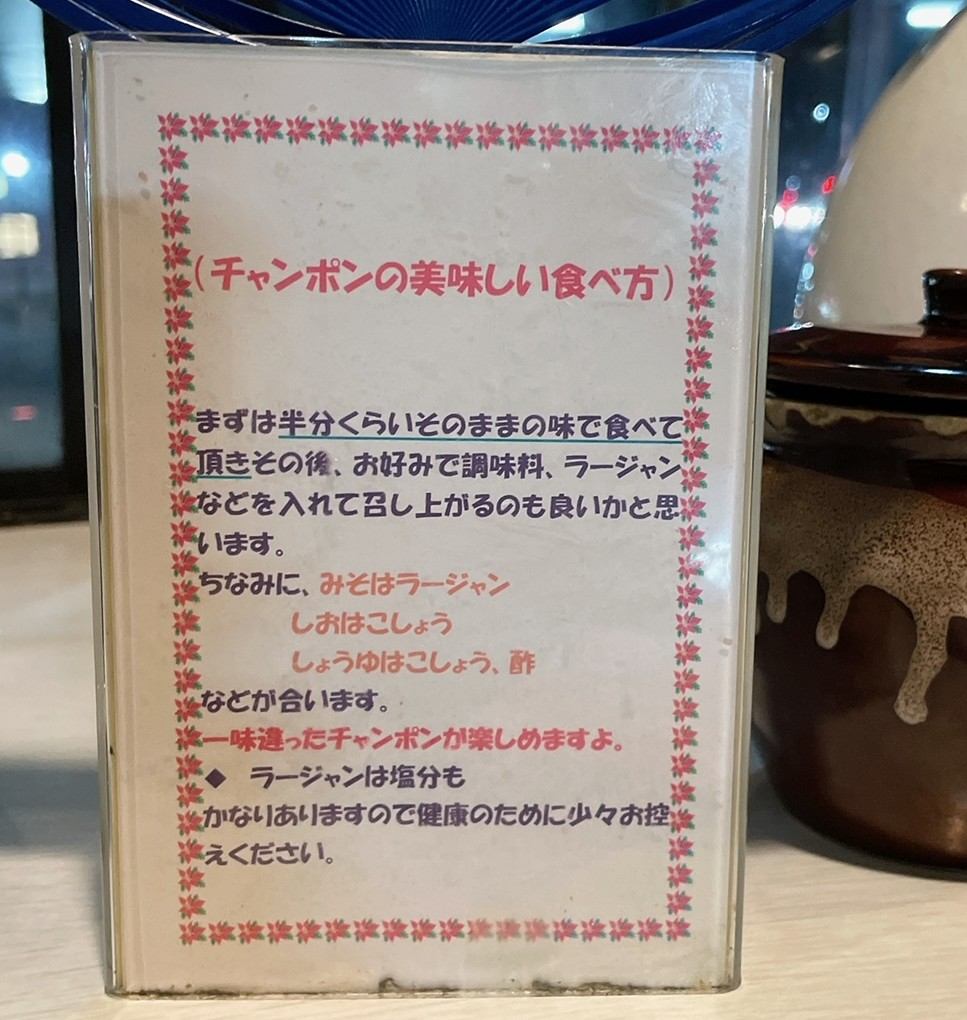 (チャンポンの美味しい食べ方)
まずは半分くらいそのままの味で食べて
頂きその後、お好みで調味料、ラージャン
などを入れて召し上がるのも良いかと思
います。
ちなみに、みそはラージャン
しおはこしょう
しょうゆはこしょう、酢
などが合います。
一味違ったチャンポンが楽しめますよ。
◆ ラージャンは塩分も
かなりありますので健康のために少々お控
えください。